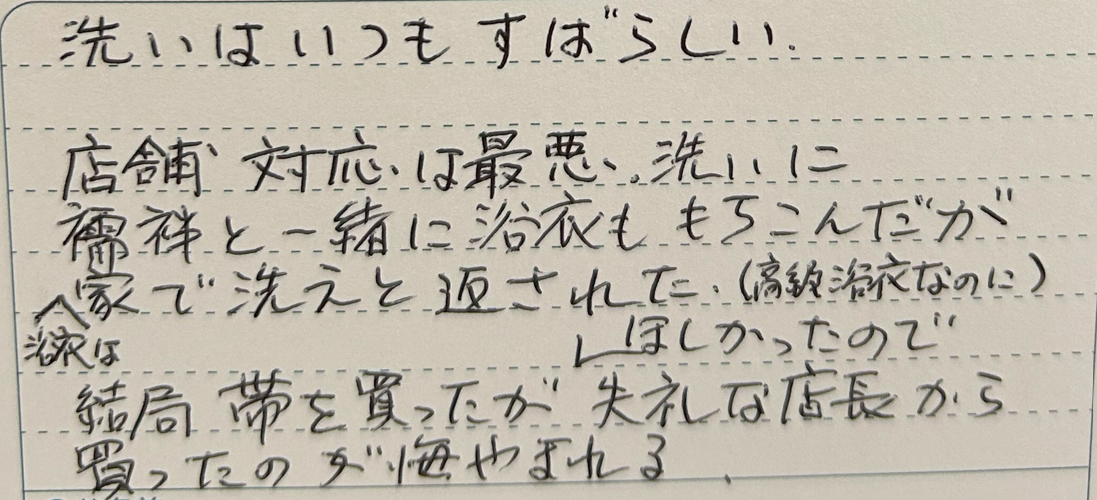 洗いはいつもすばらしい.
店舗対応は最悪、洗いに
襦袢と一緒に浴衣ももちこんだが
家で洗えと返された.(高級浴衣なのに)
浴衣は
ほしかったので
結局帯を買ったが失礼な店長から
買ったのが悔やまれる.